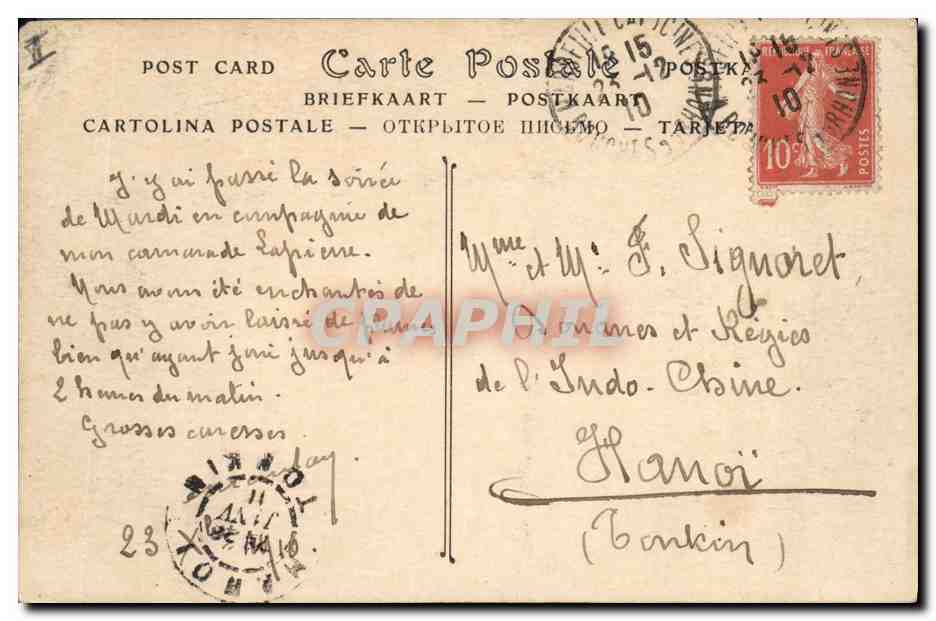 II
POST CARD Carte Postale POSTKA
BRIEFKAART — POSTKAART
CARTOLINA POSTALE — ОТКРЫТОЕ ПИСЬМО — TARJETA
15 15
23 -12
10
RHONE
15
23 -12
10
RHONE
RÉPUBLIQUE FRANÇAISE
10c
POSTES
J'y ai passé la soirée
de Mardi en compagnie de
mon camarade Lapierre.
Nous avons été enchantés de
ne pas y avoir laissé de plumes
bien qu'ayant joué jusqu'à
2 heures du matin.
Grosses caresses
23
TONKIN
HANOY
11
JANV
Mme et Mr. F. Signoret,
Douanes et Régies
de l'Indo-Chine.
Hanoï
(Tonkin)
CRAPHIL